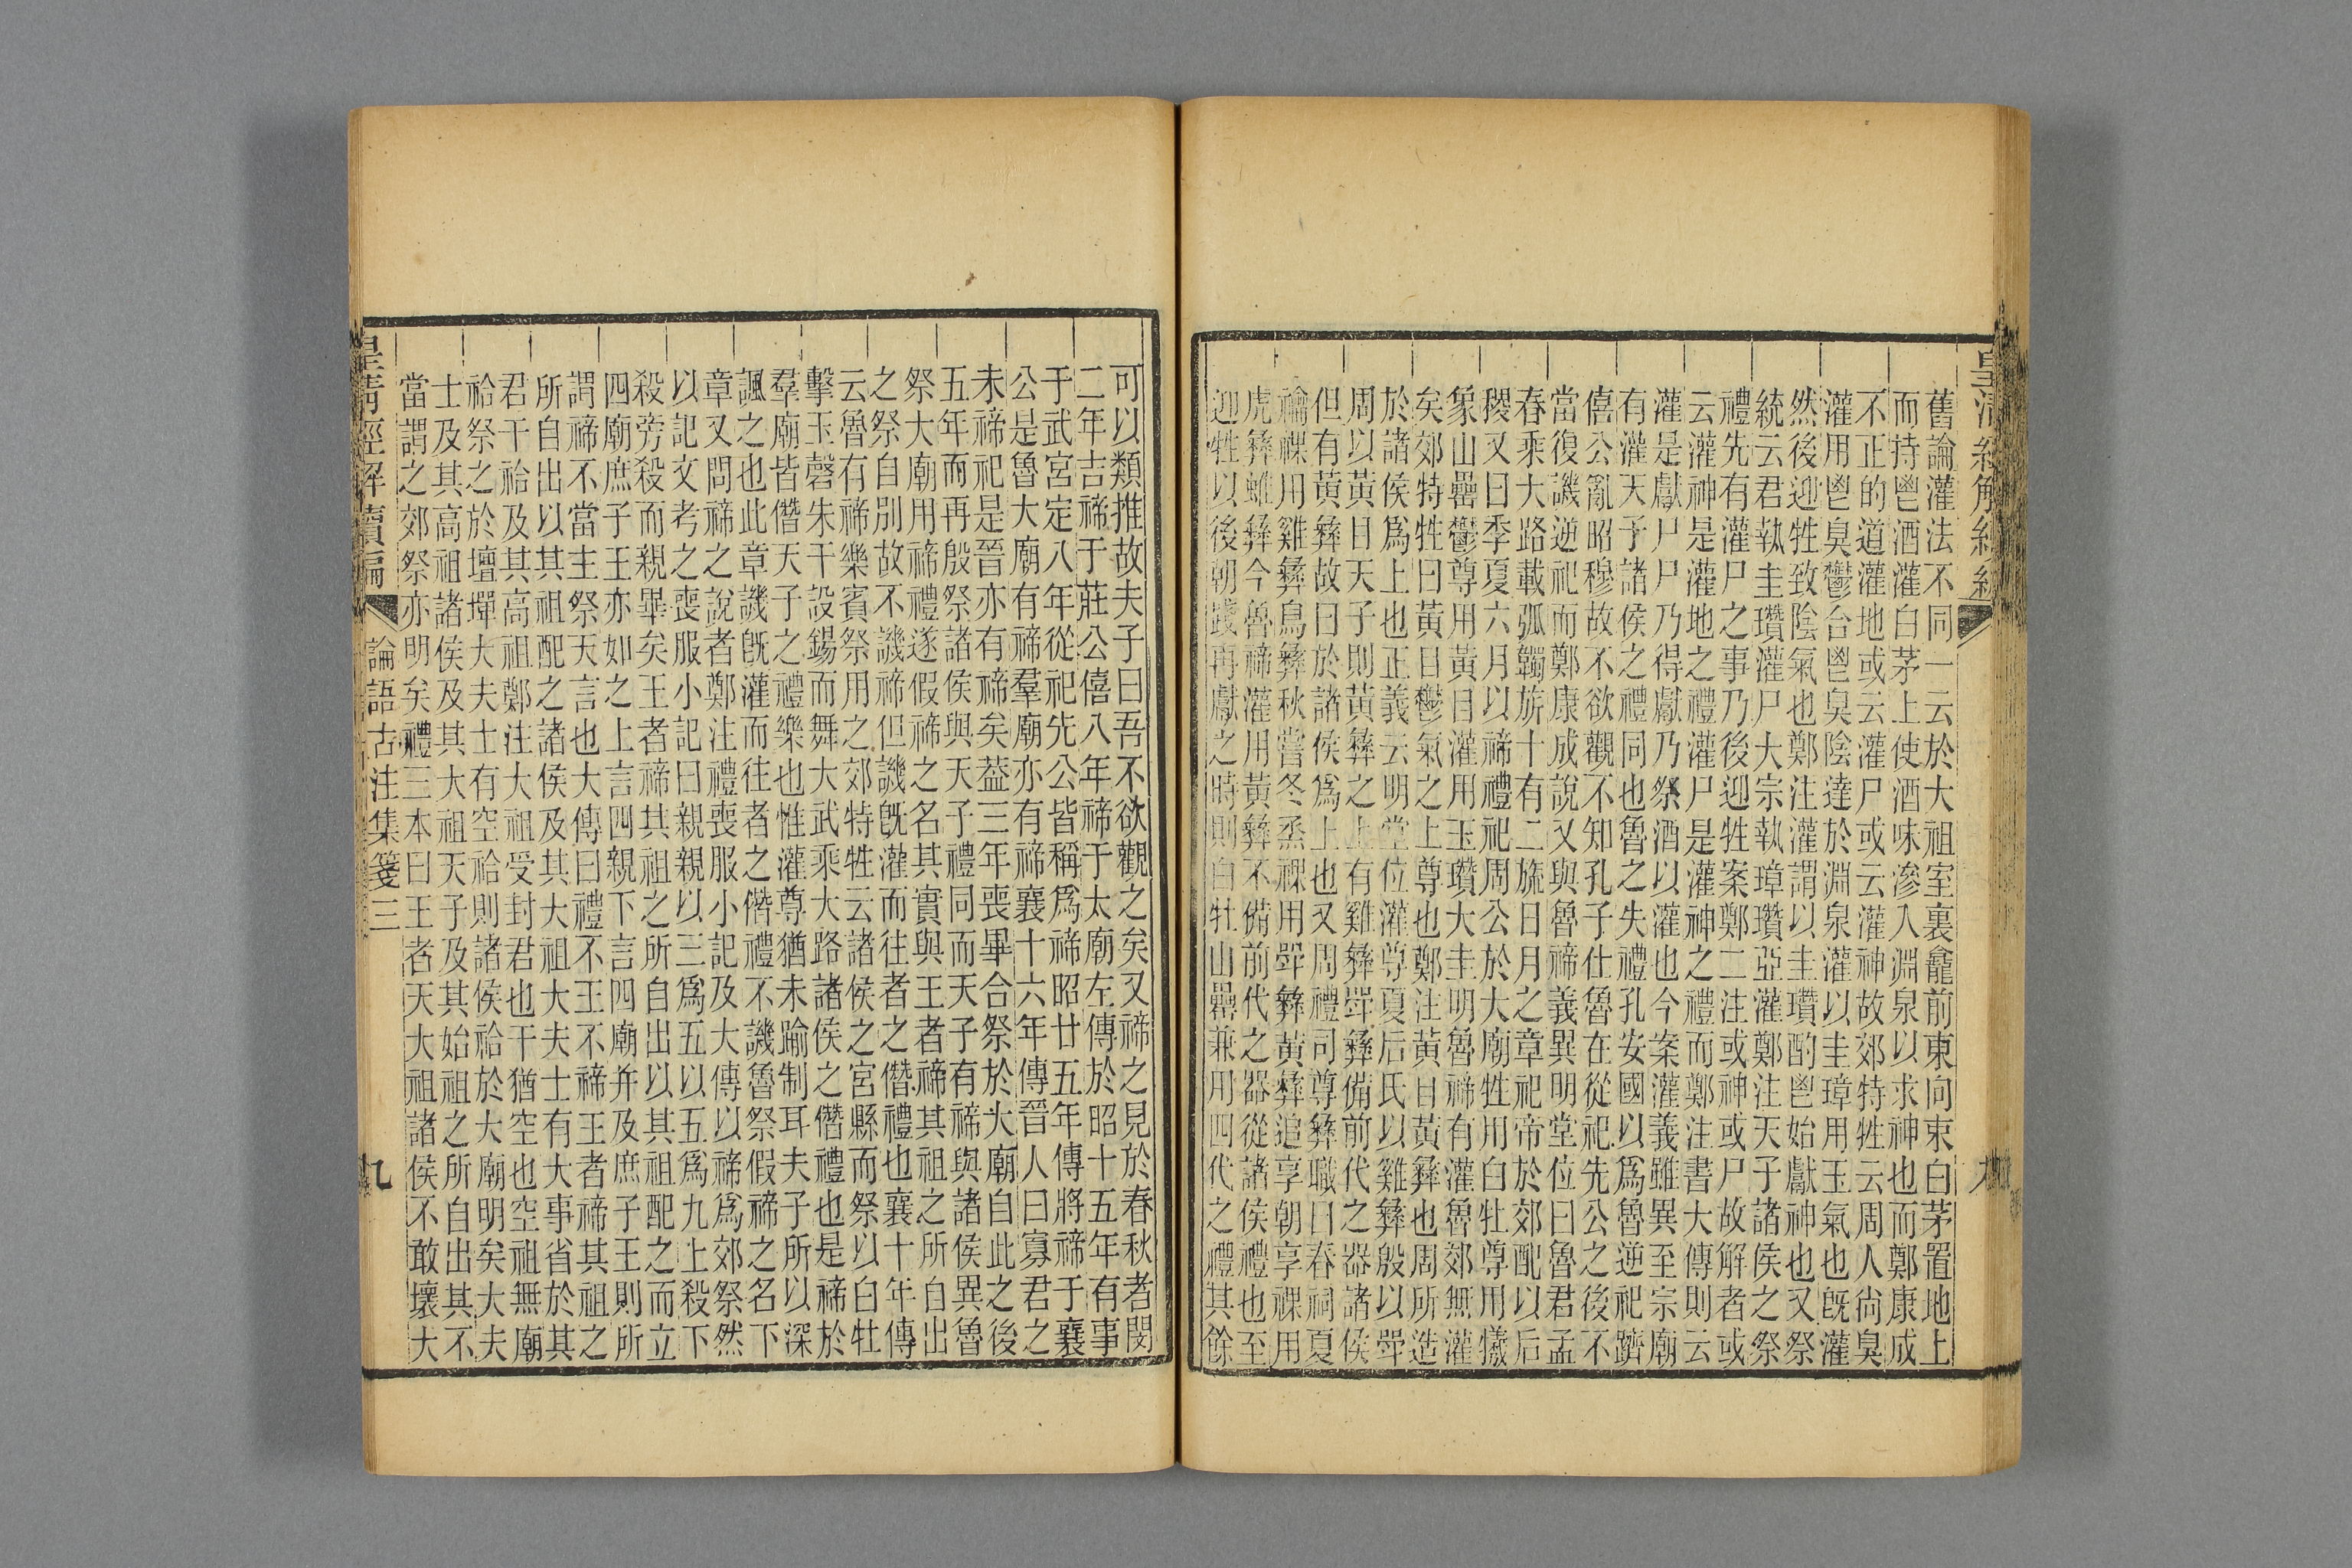 舊論灌法不同一云於大祖室裏龕前東向束白茅置地上
而持鬯酒灌白茅上使酒味滲入淵泉以求神也而鄭康成
不正的道灌地或云灌尸或云灌神故郊特牲云周人尙臭
灌用鬯臭鬱合鬯臭陰達於淵泉灌以圭璋用玉氣也旣灌
然後迎牲致陰氣也鄭注灌謂以圭瓚酌鬯始獻神也又祭
統云君執圭瓚灌尸大宗執璋瓚亞灌鄭注天子諸侯之祭
禮先有灌尸之事乃後迎牲案鄭二注或神或尸故解者或
云灌神是灌地之禮灌尸是灌神之禮而鄭注書大傳則云
灌是獻尸尸乃得獻乃祭酒以灌也今案灌義雖異至宗廟
有灌天子諸侯之禮同也魯之失禮孔安國以爲魯逆祀躋
僖公亂昭穆故不欲觀不知孔子仕魯在從祀先公之後不
當復譏逆祀而鄭康成說又與魯禘義異明堂位曰魯君孟
春乘大路載弧韣旂十有二旒日月之章祀帝於郊配以后
稷又曰季夏六月以禘禮祀周公於大廟牲用白牡尊用犧
象山罍鬱尊用黃目灌用玉瓚大圭明魯禘有灌魯郊無灌
矣郊特牲曰黃目鬱氣之上尊也鄭注黃目黃彝也周所造
於諸侯爲上也正義云明堂位灌尊夏后氏以雞彝殷以斝
周以黃目天子則黃彝之上有雞彝斝彝備前代之器諸侯
但有黃彝故曰於諸侯爲上也又周禮司尊彝職曰春祠夏
禴祼用雞彝鳥彝秋嘗冬烝祼用斝彝黃彝追享朝享祼用
虎彝蜼彝今魯禘灌用黃彝不備前代之器從諸侯禮也至
迎牲以後朝踐再獻之時則白牡山罍兼用四代之禮其餘
可以類推故夫子曰吾不欲觀之矣又禘之見於春秋者閔
二年吉禘于莊公僖八年禘于太廟左傳於昭十五年有事
于武宮定八年從祀先公皆稱爲禘昭廿五年傳將禘于襄
公是魯大廟有禘羣廟亦有禘襄十六年傳晉人曰寡君之
未禘祀是晉亦有禘矣葢三年喪畢合祭於大廟自此之後
五年而再殷祭諸侯與天子禮同而天子有禘與諸侯異魯
祭大廟用禘禮遂假禘之名其實與王者禘其祖之所自出
之祭自別故不譏禘但譏旣灌而往者之僭禮也襄十年傳
云魯有禘樂賓祭用之郊特牲云諸侯之宮縣而祭以白牡
擊玉磬朱干設錫而舞大武乘大路諸侯之僭禮也是禘於
羣廟皆僭天子之禮樂也惟灌尊猶未踰制耳夫子所以深
諷之也此章譏旣灌而往者之僭禮不譏魯祭假禘之名下
章又問禘之說者鄭注禮喪服小記及大傳以禘爲郊祭然
以記文考之喪服小記曰親親以三爲五以五爲九上殺下
殺旁殺而親畢矣王者禘其祖之所自出以其祖配之而立
四廟庶子王亦如之上言四親下言四廟幷及庶子王則所
謂禘不當主祭天言也大傳曰禮不王不禘王者禘其祖之
所自出以其祖配之諸侯及其大祖大夫士有大事省於其
君干祫及其高祖鄭注大祖受封君也干猶空也空祖無廟
祫祭之於壇墠大夫士有空祫則諸侯祫於大廟明矣大夫
士及其高祖諸侯及其大祖天子及其始祖之所自出其不
當謂之郊祭亦明矣禮三本曰王者天大祖諸侯不敢壞大
論語古注集箋三
九